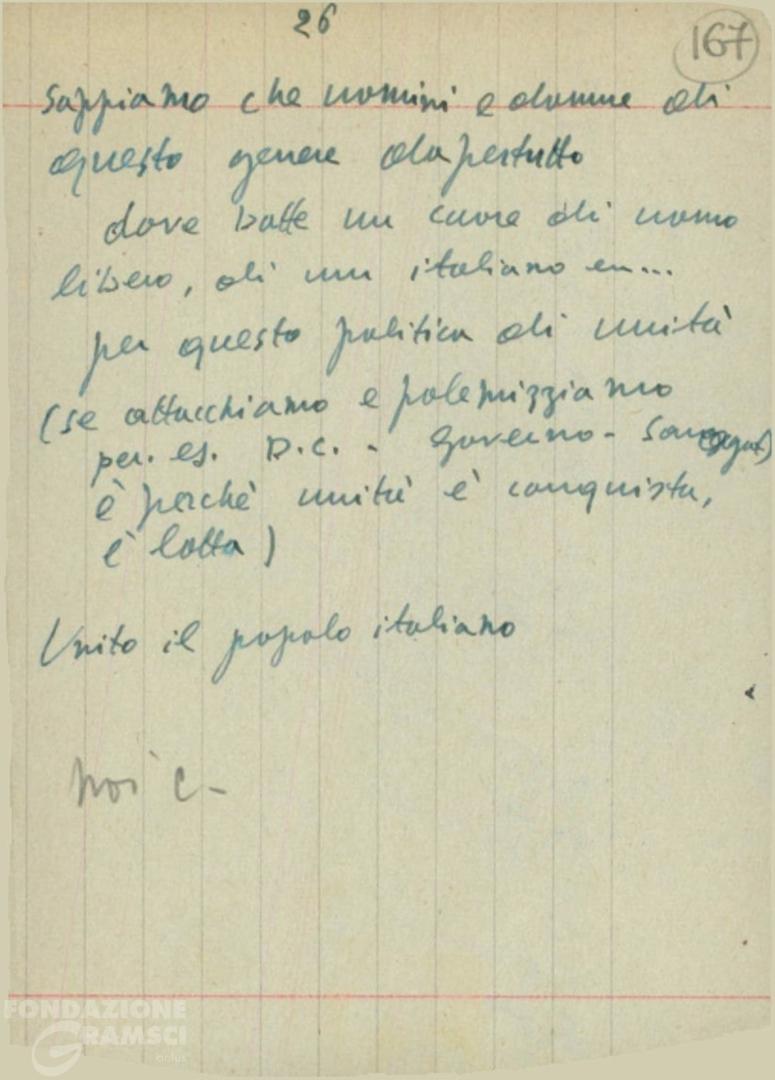 26
167
sappiamo che uomini e donne di
questo genere dapertutto
dove batte un cuore di uomo
libero, di un italiano en...
per questo politica di unità
(se attacchiamo e polemizziamo
per. es. D.C. - Governo -
è perchè unità è conquista,
è lotta)
Unito il popolo italiano
noi c-
FONDAZIONE
GRAMSCI
onlus